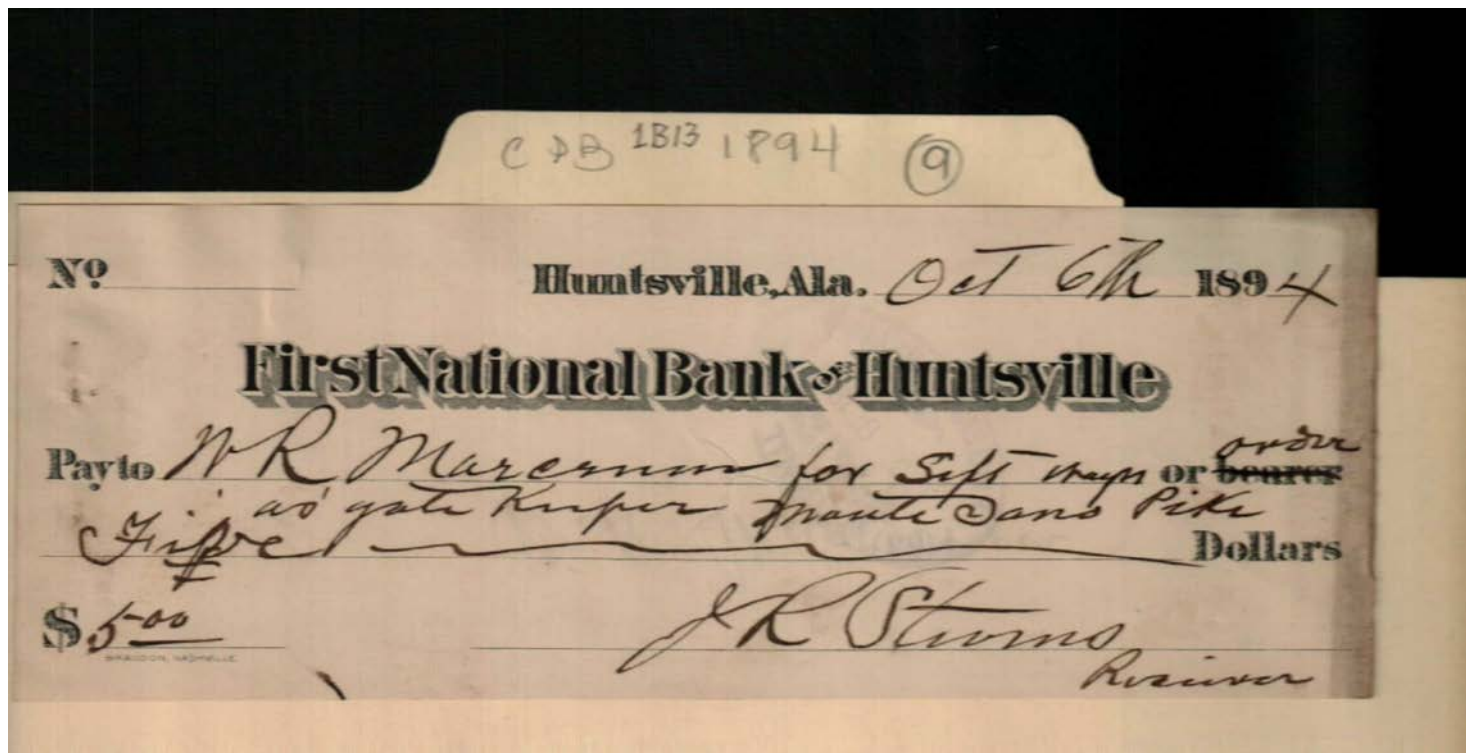 CDB 1B13 1894 9
No Huntsville, Ala. Oct 6th 1894
First National Bank of Huntsville
order
Pay to W R Marcrum for Sept wages or bearer
as gate Keeper Monte Sano Pike
Five Dollars
$ 5.00
J R Stevens
Receiver